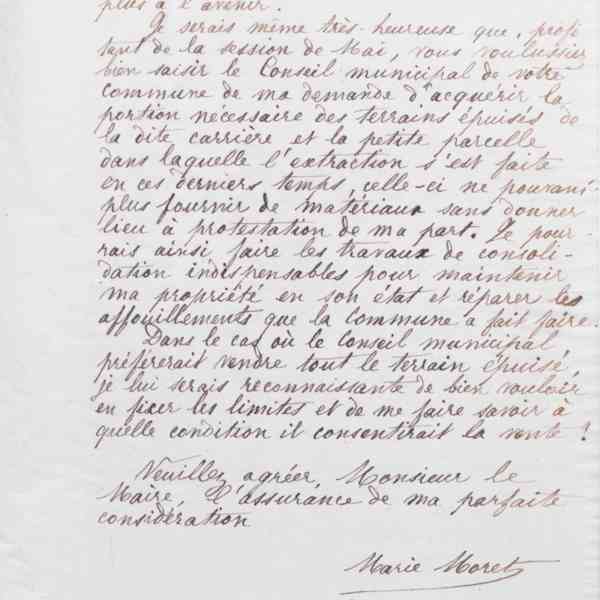 plus à l'avenir.
Je serais même très-heureuse que, profi
tant de la session de Mai, vous voulussiez
bien saisir le Conseil municipal de votre
commune de ma demande d'acquérir la
portion nécessaire des terrains épuisés de
la dite carrière et la petite parcelle
dans laquelle l'extraction s'est faite
en ces derniers temps, celle-ci ne pouvant
plus fournir de matériaux sans donner
lieu à protestation de ma part. Je pour-
rais ainsi faire les travaux de consoli-
dation indispensables pour maintenir
ma propriété en son état et réparer les
affouillements que la Commune a fait faire.
Dans le cas où le Conseil municipal
préférerait vendre tout le terrain épuisé,
je lui serais reconnaissante de bien vouloir
en fixer les limites et de me faire savoir à
quelle condition il consentirait la vente ?
Veuillez agréer, Monsieur le
Maire, l'assurance de ma parfaite
considération
Marie Moret